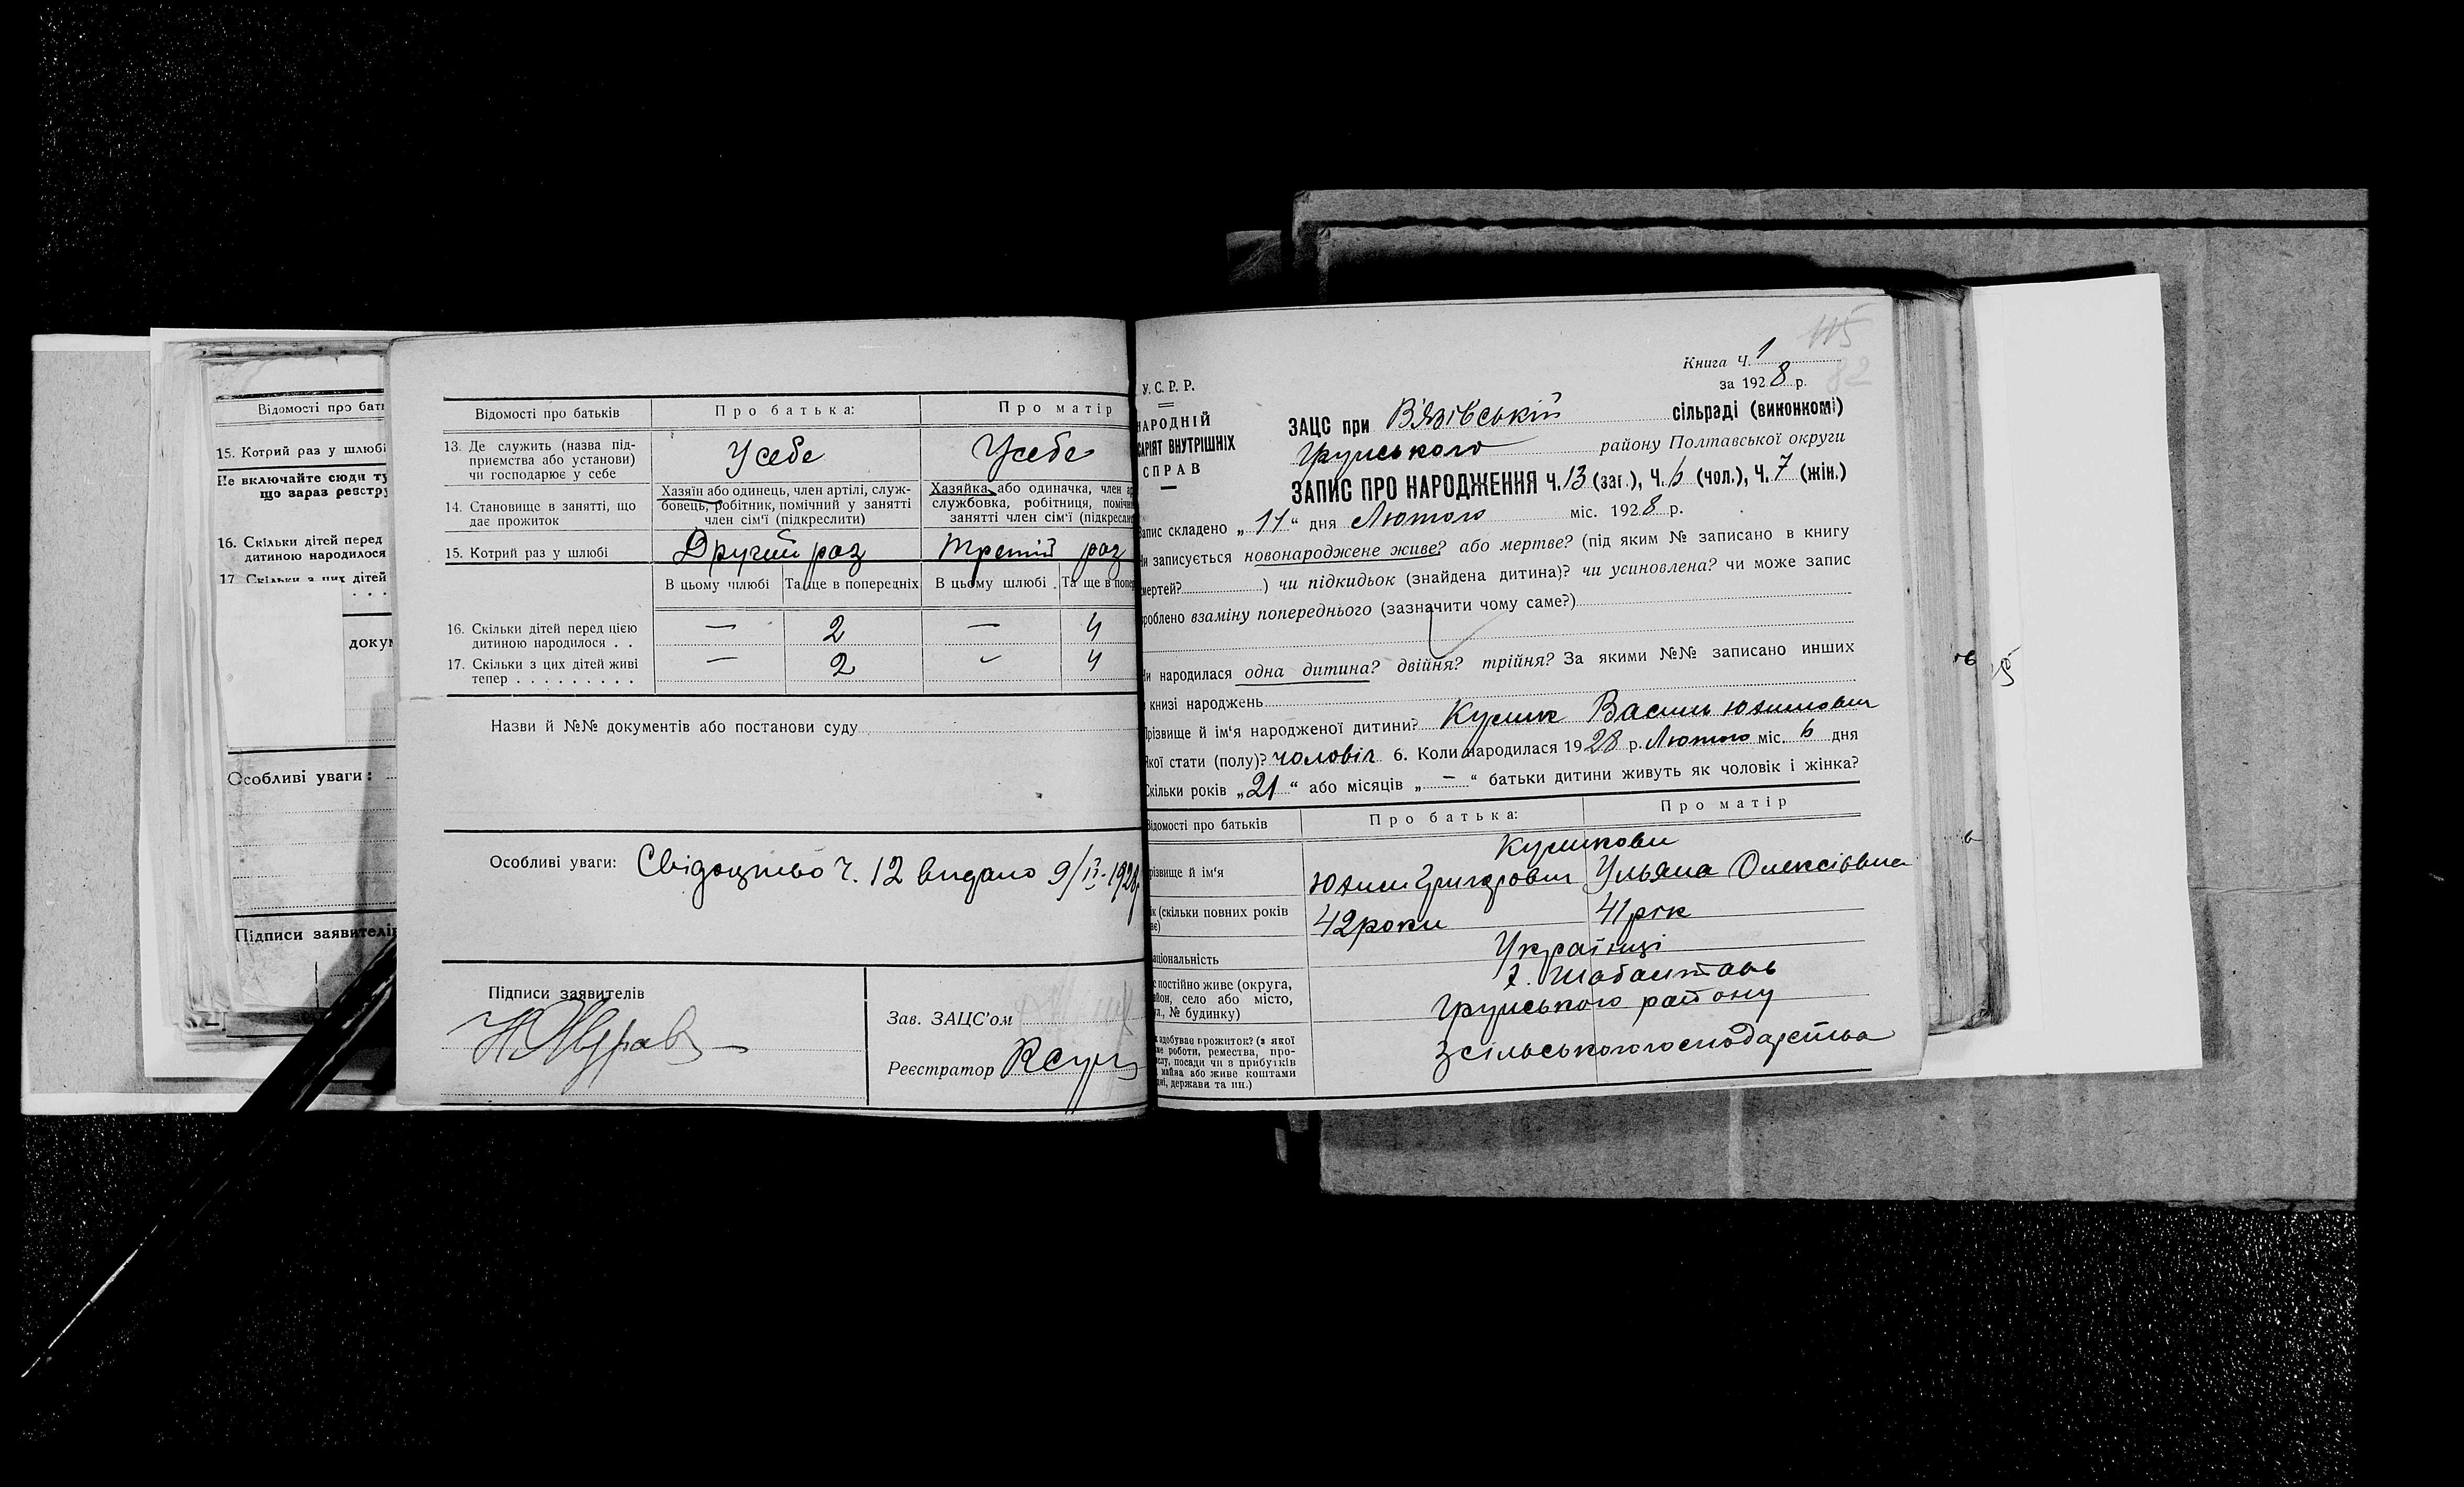 Відомості про бать
15. Котрий раз у шлюбі
Не включайте сюди
що зараз реєстру
16. Скільки дітей перед
дитиною народилося
17. Скільки з цих дітей
докум
Особливі уваги:
Підписи заявителів
Відомості про батьків
Про батька:
Про матір
13. Де служить (назва під-
приємства або установи)
чи господарює у себе
У себе
У себе
14. Становище в занятті, що
дає прожиток
Хазяїн або одинець, член артілі, служ-
бовець, робітник, помічний у занятті
член сім'ї (підкреслити)
Хазяйка або одиначка, член ар
службовка, робітниця, помічн
занятті член сім'ї (підкресли
15. Котрий раз у шлюбі
Другий раз
Третій раз
В цьому шлюбі
Та ще в попередніх
В цьому шлюбі
Та ще в попер
16. Скільки дітей перед цією
дитиною народилося . .
— 2 — 4
17. Скільки з цих дітей живі
тепер . . . . . . . . .
— 2 — 4
Назви й №№ документів або постанови суду
Особливі уваги: Свідоцтво Ч. 12 видано 9/II-1928
Підписи заявителів
Зав. ЗАЦС'ом
Реєстратор
115
82
Книга Ч. 1
за 1928 р.
У. С. Р. Р.
НАРОДНІЙ
САРІЯТ ВНУТРІШНІХ
СПРАВ
ЗАЦС при В'язівській сільраді (виконкомі)
Грунського району Полтавської округи
ЗАПИС ПРО НАРОДЖЕННЯ Ч. 13 (заг.), Ч. 6 (чол.), Ч. 7 (жін.)
Запис складено „11" дня Лютого міс. 1928 р.
Чи записується новонароджене живе? або мертве? (під яким № записано в книгу
мертей? ) чи підкидьок (знайдена дитина)? чи усиновлена? чи може запис
роблено взаміну попереднього (зазначити чому саме?)
Чи народилася одна дитина? двійня? трійня? За якими №№ записано инших
книзі народжень
Прізвище й ім'я народженої дитини? Кулик Василь Юхимович
Якої стати (полу)? чоловіч 6. Коли народилася 1928 р. Лютого міс. 6 дня
Скільки років „21" або місяців „—" батьки дитини живуть як чоловік і жінка?
Відомості про батьків
Про батька:
Про матір
Куликови
різвище й ім'я
Юхим Григорович
Ульяна Олексіївна
ік (скільки повних років
ає)
42 роки
41 рік
аціональність
Українці
е постійно живе (округа,
айон, село або місто,
ул., № будинку)
х. Шабалтаєв
Грунського району
к здобуває прожиток? (з якої
ме роботи, ремества, про-
селу, посади чи з прибутків
майна або живе коштами
дні, держави та ин.)
З сільського господарства